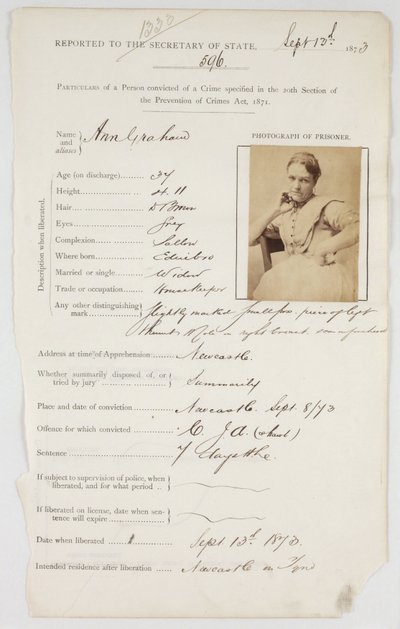 1330
REPORTED TO THE SECRETARY OF STATE, Sept 13th 1873
596.
PARTICULARS of a Person convicted of a Crime specified in the 20th Section of
the Prevention of Crimes Act, 1871.
Name and aliases } Ann Graham
PHOTOGRAPH OF PRISONER.
Description when liberated.
Age (on discharge)......... 37
Height.................. 4. 11
Hair..................... D Brown
Eyes..................... Grey
Complexion............... Sallow
Where born............... Edinbro
Married or single......... Widow
Trade or occupation...... Housekeeper
Any other distinguishing mark........ } Slightly marked Smallpox. piece of left
thumb Mole on right breast scar on forehead
Address at time of Apprehension....... Newcastle.
Whether summarily disposed of, or tried by jury ........ } Summarily
Place and date of conviction........... Newcastle. Sept. 8/73
Offence for which convicted ............
Sentence ........................ 7 days
If subject to supervision of police, when liberated, and for what period .. }
If liberated on license, date when sentence will expire.................. }
Date when liberated ...... Sept 13th 1873.
Intended residence after liberation ...... Newcastle on Tyne